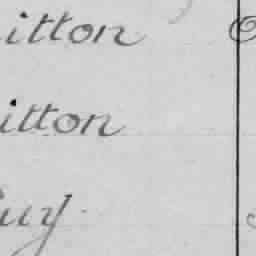 itton
itton
uy